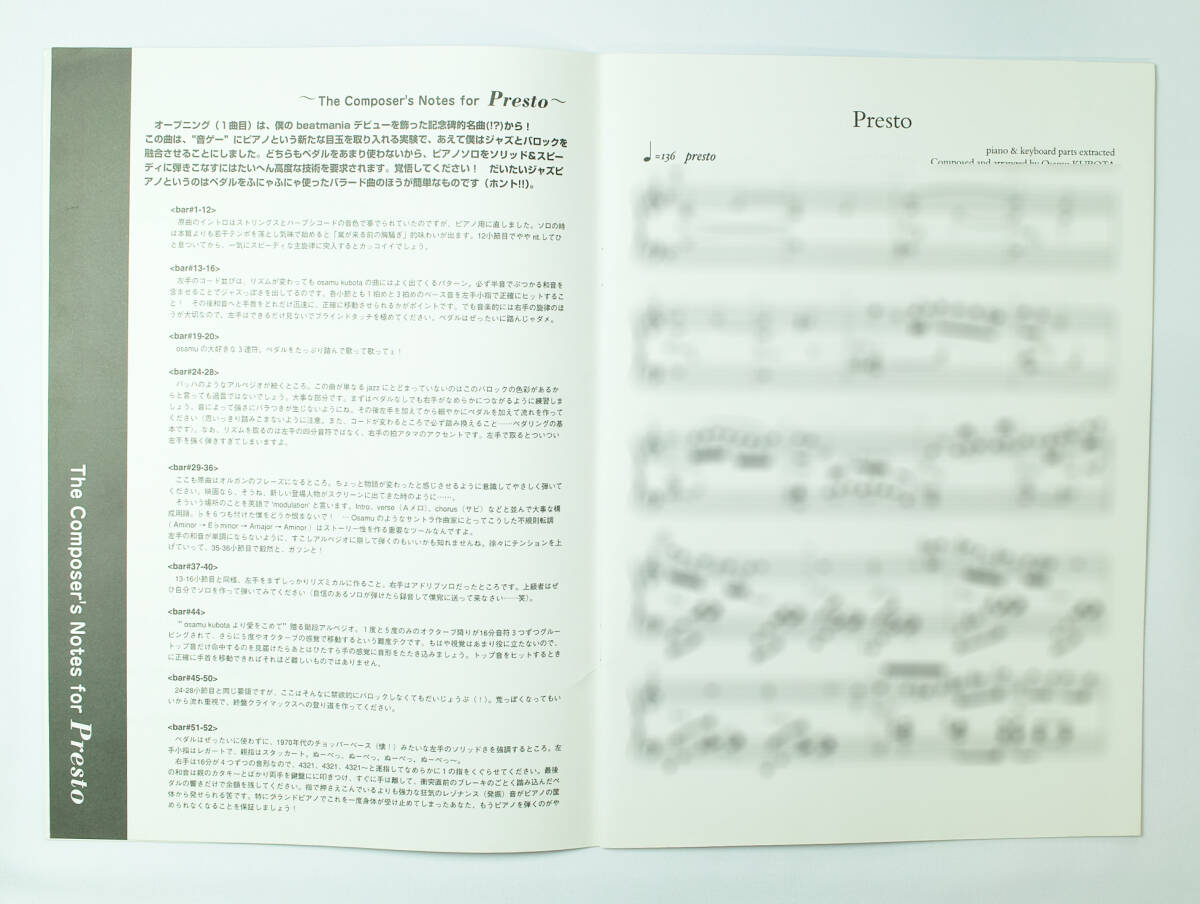 The Composer's Notes for Presto
～The Composer's Notes for Presto～
オープニング（1曲目）は、僕の beatmania デビューを飾った記念碑的名曲(!?)から！
この曲は、"音ゲー" にピアノという新たな目玉を取り入れる実験で、あえて僕はジャズとバロックを
融合させることにしました。どちらもペダルをあまり使わないから、ピアノソロをソリッド&スピー
ディに弾きこなすにはたいへん高度な技術を要求されます。覚悟してください！ だいたいジャズピ
アノというのはペダルをふにゃふにゃ使ったバラード曲のほうが簡単なものです（ホント!!）。
<bar#1-12>
原曲のイントロはストリングスとハープシコードの音色で奏でられていたのですが、ピアノ用に直しました。ソロの時
は本篇よりも若干テンポを落とし気味で始めると「嵐が来る前の胸騒ぎ」的味わいが出ます。12小節目でやや rit.してひ
と息ついてから、一気にスピーディな主旋律に突入するとカッコイイでしょう。
<bar#13-16>
左手のコード並びは、リズムが変わっても osamu kubota の曲にはよく出てくるパターン。必ず半音でぶつかる和音を
含ませることでジャズっぽさを出してるのです。各小節とも1拍めと3拍めのベース音を左手小指で正確にヒットするこ
と！ その後和音へと手首をどれだけ迅速に、正確に移動させられるかがポイントです。でも音楽的には右手の旋律のほ
うが大切なので、左手はできるだけ見ないでブラインドタッチを極めてください。ペダルはぜったいに踏んじゃダメ。
<bar#19-20>
osamu の大好きな3連符。ペダルをたっぷり踏んで歌って歌ってぇ！
<bar#24-28>
バッハのようなアルペジオが続くところ。この曲が単なる jazz にとどまっていないのはこのバロックの色彩があるか
らと言っても過言ではないでしょう。大事な部分です。まずはペダルなしでも右手がなめらかにつながるように練習しま
しょう。音によって強さにバラつきが生じないようにね。その後左手を加えてから細やかにペダルを加えて流れを作って
ください（思いっきり踏みこまないように注意。また、コードが変わるところで必ず踏み換えること……ペダリングの基
本です）。なお、リズムを取るのは左手の四分音符ではなく、右手の拍アタマのアクセントです。左手で取るとついつい
左手を強く弾きすぎてしまいますよ。
<bar#29-36>
ここも原曲はオルガンのフレーズになるところ。ちょっと物語が変わったと感じさせるように意識してやさしく弾いて
ください。映画なら、そうね、新しい登場人物がスクリーンに出てきた時のように……。
そういう場所のことを英語で 'modulation' と言います。Intro、verse（Aメロ）、chorus（サビ）などと並んで大事な構
成用語。♭を6つも付けた僕をどうか恨まないで！ …Osamu のようなサントラ作曲家にとってこうした不規則転調
（Aminor → E♭minor → Amajor → Aminor）はストーリー性を作る重要なツールなんですよ。
左手の和音が単調にならないように、すこしアルペジオに崩して弾くのもいいかも知れませんね。徐々にテンションを上
げていって、35-36小節目で毅然と、ガツンと！
<bar#37-40>
13-16小節目と同様、左手をまずしっかりリズミカルに作ること。右手はアドリブソロだったところです。上級者はぜ
ひ自分でソロを作って弾いてみてください（自信のあるソロが弾けたら録音して僕宛に送って来なさい……笑）。
<bar#44>
"osamu kubota より愛をこめて" 贈る階段アルペジオ。1度と5度のみのオクターブ降りが16分音符3つずつグルー
ピングされて、さらに5度やオクターブの感覚で移動するという難度テク です。もはや視覚はあまり役に立たないので、
トップ音だけ命中するのを見届けたらあとはひたすら手の感覚に音形をたたき込みましょう。トップ音をヒットするとき
に正確に手首を移動できればそれほど難しいものではありません。
<bar#45-50>
24-28小節目と同じ要領ですが、ここはそんなに禁欲的にバロックしなくてもだいじょうぶ（！）。荒っぽくなってもい
いから流れ重視で、終盤クライマックスへの登り道を作ってください。
<bar#51-52>
ペダルはぜったいに使わずに、1970年代のチョッパーベース（懐！）みたいな左手のソリッドさを強調するところ。左
手小指はレガートで、親指はスタッカート。ぬーぺっ、ぬーぺっ、ぬーぺっ、ぬーぺっ〜。
右手は16分が4つずつの音形なので、4321、4321、4321〜と運指してなめらかに1の指をくぐらせてください。最後
の和音は親のカタキ〜とばかり両手を鍵盤に叩きつけ、すぐに手は離して、衝突直前のブレーキのごとく踏み込んだペ
ダルの響きだけで余韻を残してください。指で押さえこんでいるよりも強力な狂気のレゾナンス（発振）音がピアノの筐
体から発せられる筈です。特にグランドピアノでこれを一度身体が受け止めてしまったあなた、もうピアノを弾くのがや
められなくなることを保証しましょう！
Presto
♩=136 presto
piano & keyboard parts extracted
Composed and arranged by Osamu KUBOTA